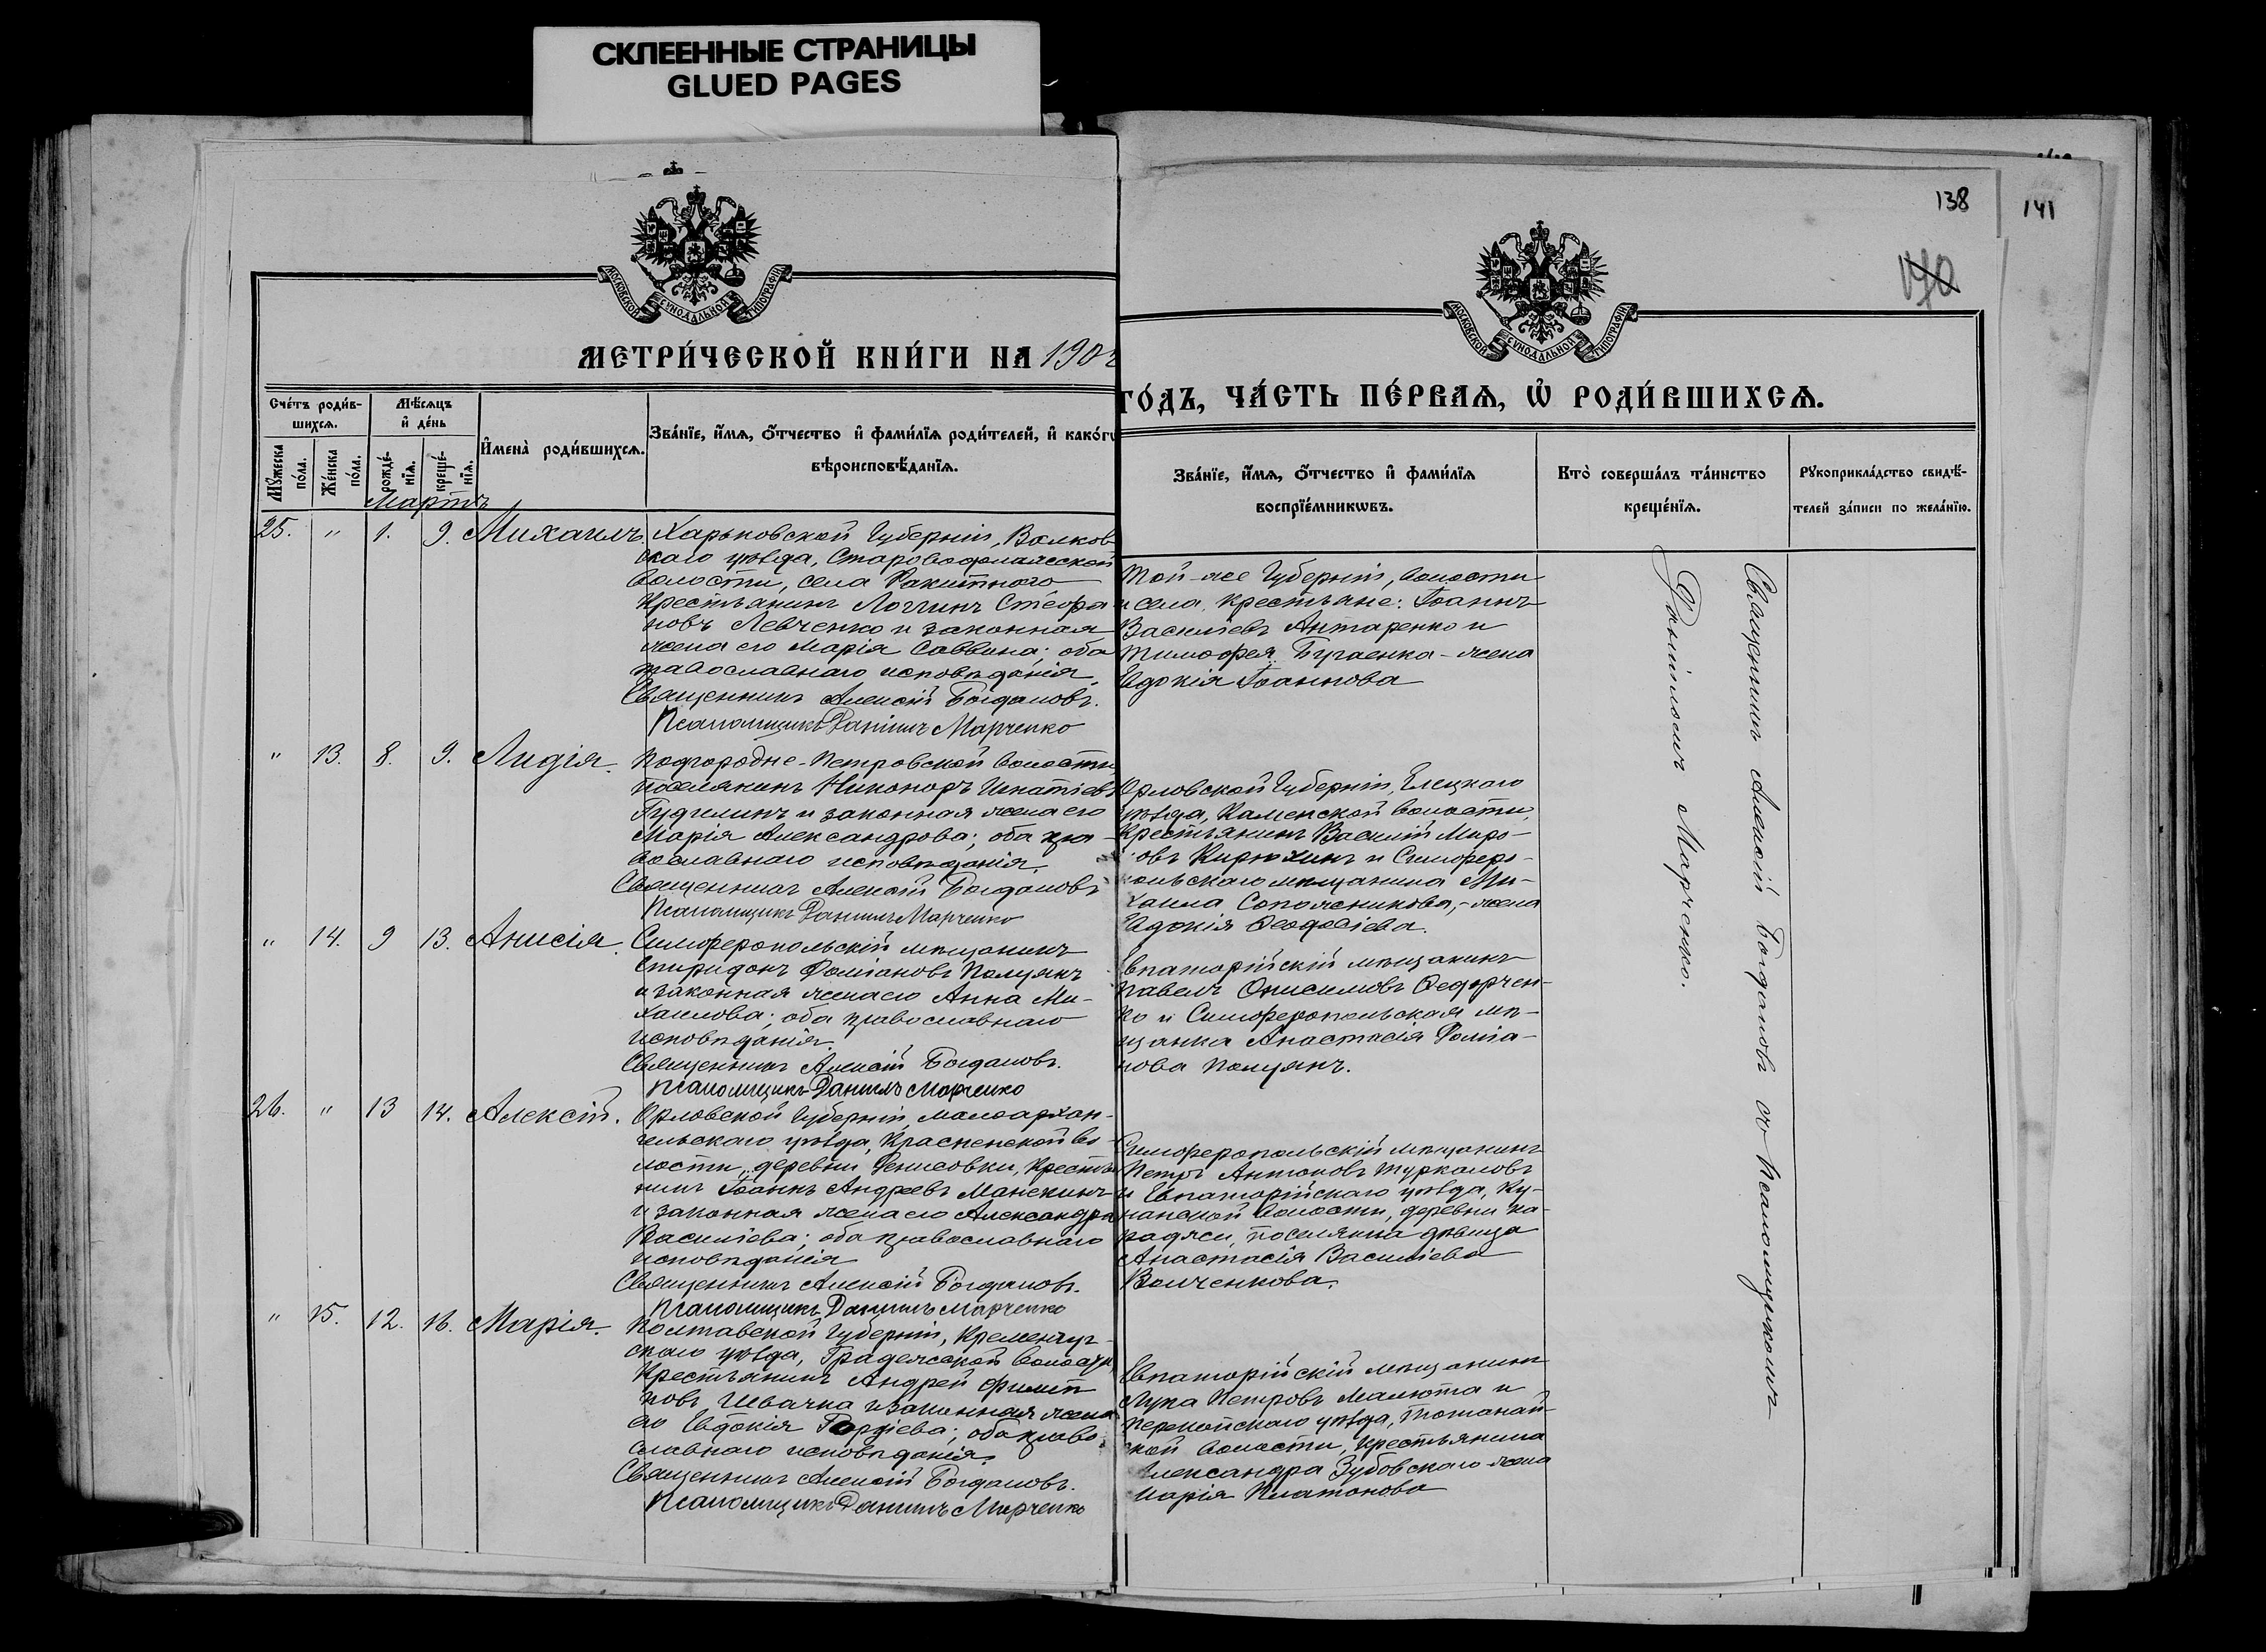 СКЛЕЕННЫЕ СТРАНИЦЫ
GLUED PAGES
138
141
МОСКОВСКОЙ СѴНОДАЛЬНОЙ ТИПОГРАФІИ
МОСКОВСКОЙ СѴНОДАЛЬНОЙ ТИПОГРАФІИ
МЕТРИ́ЧЕСКОЙ КНИ́ГИ НА 1902
ГО́ДЪ, ЧА́СТЬ ПЕ́РВАѦ, Ѡ҆ РОДИ́ВШИХСѦ.
Сче́тъ роди́в-
шихсѧ.
Мꙋ́жеска
по́ла.
Же́нска
по́ла.
Мѣ́сѧцъ
и҆ де́нь
рожде́-
нїѧ.
креще́-
нїѧ.
И҆мена̀ роди́вшихсѧ.
Зва́нїе, и҆́мѧ, ѻ҆́тчество и҆ фами́лїѧ роди́телей, и҆ како́гѡ
вѣроисповѣ́данїѧ.
Зва́нїе, и҆́мѧ, ѻ҆́тчество и҆ фами́лїѧ
воспрїе́мникѡвъ.
Кто̀ соверша́лъ та́инство
креще́нїѧ.
Рꙋкоприкла́дство свидѣ́-
телей за́писи по жела́нїю.
Мартъ
25. " 1. 9. Михаилъ
Харьковской Губерніи, Валков
скаго уѣзда, Староводолажской
Волости, села Ракитного
Крестьянинъ Логгинъ Стефа
новъ Левченко и законная
жена его Марія Саввина; оба
православнаго исповѣданія.
Священникъ Алексій Богдановъ.
Псаломщикъ Даніилъ Марченко
Той-же Губерніи, волости
и села, крестьяне: Іоаннъ
Василіевъ Антаренко и
Тимофея Бугаенка - жена
Евдокія Іоаннова
" 13. 8. 9. Лидія.
Подгородне-Петровской Волости,
поселянинъ Никоноръ Игнатіевъ
Гудилинъ и законная жена его
Марія Александрова; оба пра-
вославнаго исповѣданія.
Священникъ Алексій Богдановъ
Псаломщикъ Даніилъ Марченко
Орловской Губерніи, Елецкаго
уѣзда, Каменской Волости,
Крестьянинъ Василій Миро-
овъ Кирюхинъ и Симферо-
польскаго мѣщанина Ми-
хаила Сапожникова, - жена
Евдокія Ѳеодосіева.
" 14. 9 13. Анисія.
Симферопольскій мѣщанинъ
Спиридонъ Даміановъ Полуянъ
и законная жена его Анна Ми-
хаилова; оба православнаго
исповѣданія.
Священникъ Алексій Богдановъ.
Псаломщикъ Даніилъ Марченко
Евпаторійскій мѣщанинъ
Павелъ Онисимовъ Ѳедорчен-
ко и Симферопольская мѣ-
щанка Анастасія Даміа-
нова Полуянъ.
26. " 13 14. Алексій.
Орловской Губерніи, Малоархан-
гельскаго уѣзда, Красненской Во-
лости, деревни Денисовки, крестья
нинъ Іоаннъ Андреевъ Манскинъ
и законная жена его Александра
Василіева; оба православнаго
исповѣданія
Священникъ Алексій Богдановъ.
Псаломщикъ Даніилъ Марченко
Симферопольскій мѣщанинъ
Петръ Антоновъ Туркаловъ
и Евпаторійскаго уѣзда, Ку-
нанской Волости, деревни Ка-
раджи, поселянка дѣвица
Анастасія Василіева
Волченкова.
" 15. 12. 16. Марія.
Полтавской Губерніи, Кременчуг-
скаго уѣзда, Градежской Волости,
Крестьянинъ Андрей Филип
повъ Швачка и законная жена
его Евдокія Гордіева; оба право-
славнаго исповѣданія.
Священникъ Алексій Богдановъ.
Псаломщикъ Даніилъ Марченко
Евпаторійскій мѣщанинъ
Лука Петровъ Малюта и
Перекопскаго уѣзда, Тотанай-
ской Волости, крестьянина
Александра Зубовскаго жена
Марія Платонова
Священникъ Алексій Богдановъ съ Псаломщикомъ
Даніиломъ Марченко.